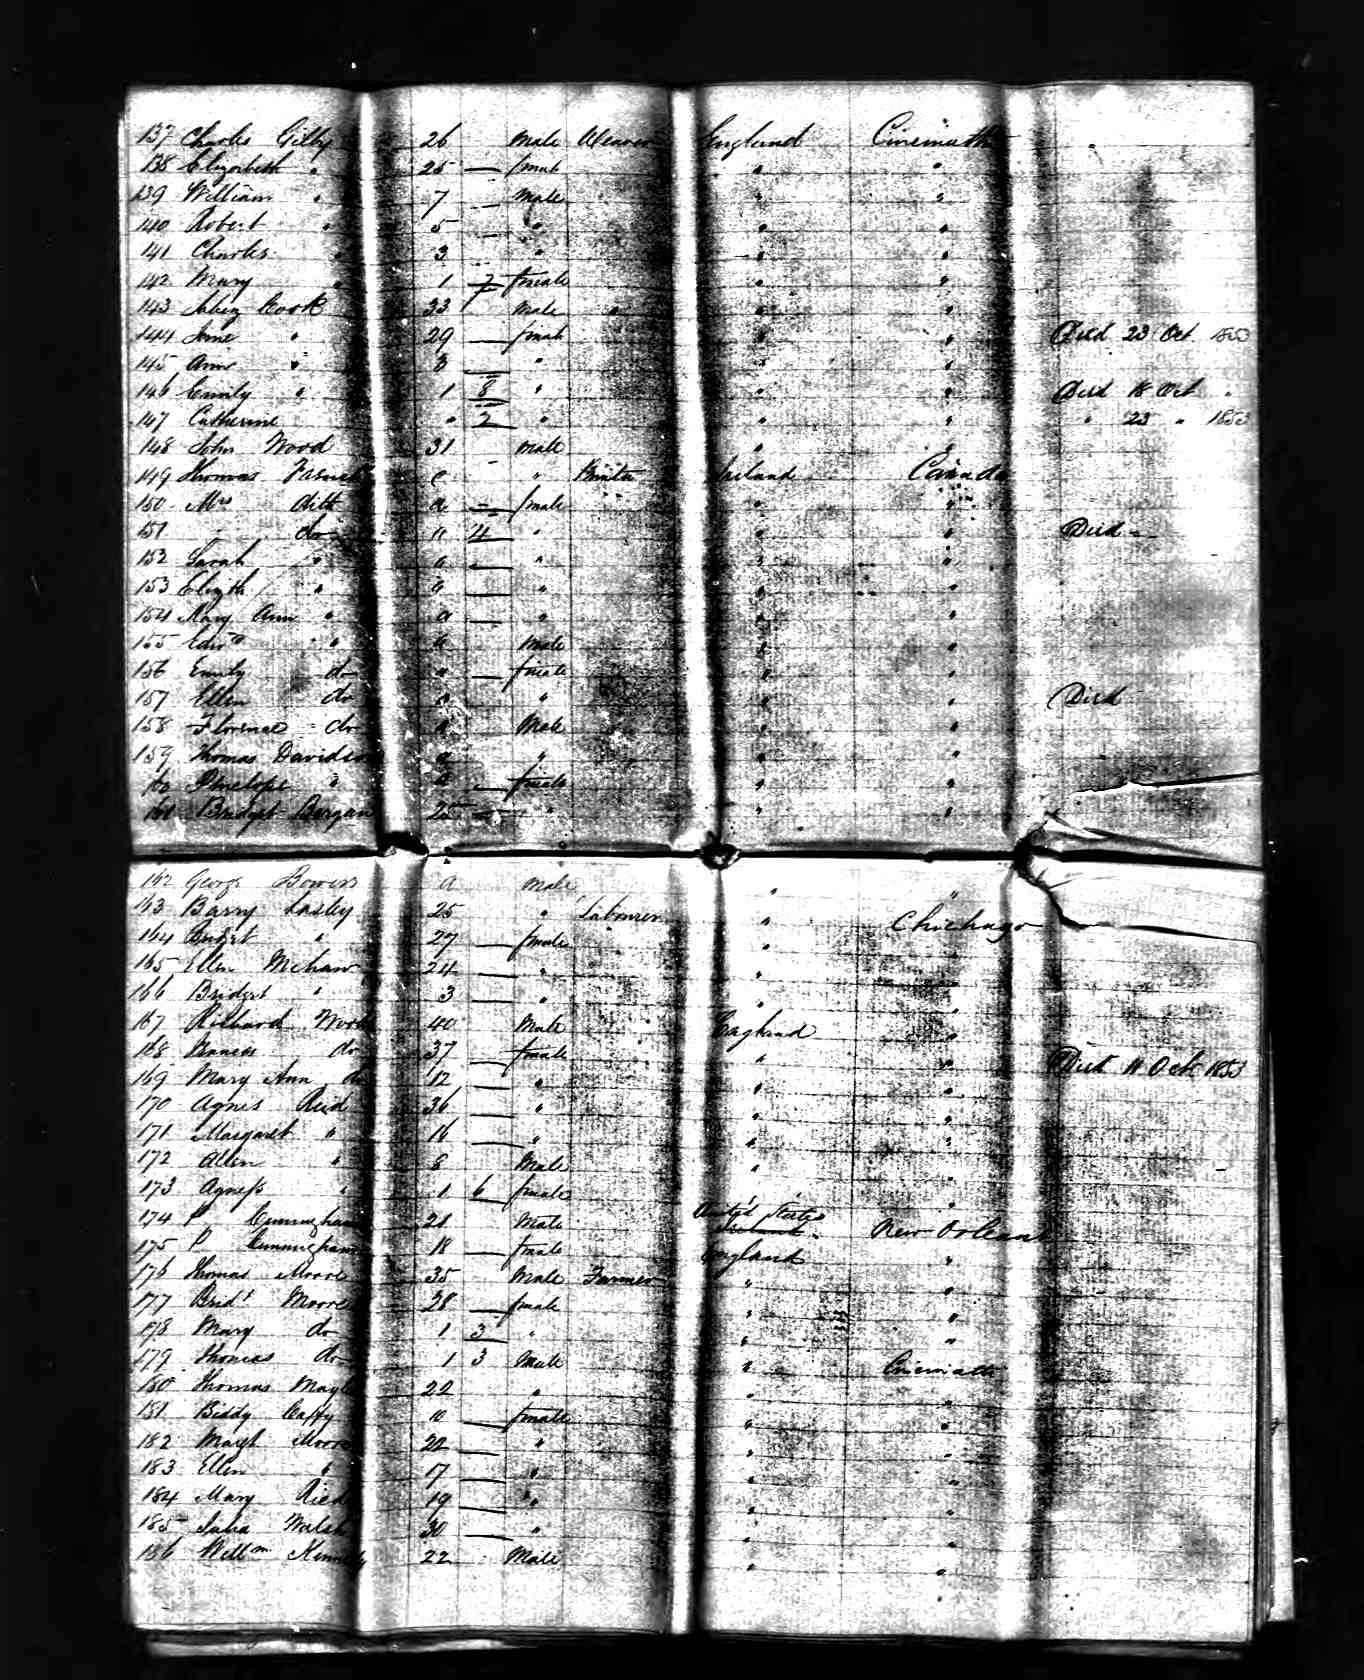 137 Charles Gilby 26 Male Weaver England Cincinatti "
138 Elizabeth " 25 — female " "
139 William " 7 — Male " "
140 Robert " 5 — " " "
141 Charles " 3 " " "
142 Mary " 1 7 female " "
143 Cook 33 Male " " "
144 Jane " 29 — female " " Died 23 Oct 1853
145 Ann " 3 — " " "
146 Emily " 1 8 " " " Died 18 Oct "
147 Catherine " 2 " " " " 23 " 1853
148 John Wood 31 male " "
149 Thomas " Ireland Canada
150 Mrs ditto a — female " "
151 do a 4 " " " Died —
152 Sarah " a — " " "
153 Elizth " a — " " "
154 Mary Ann " a — " " "
155 Edwd " a Male " "
156 Emily do a — female " "
157 Ellen do a " " " Died
158 Florence do a Male " "
159 Thomas Davidson a " " "
160 Penelope " a — female " "
161 Bridget Bergan 25 — " " "
162 George Bowers a Male " "
163 Barry Lasley 25 " Labourer " Chichago
164 Bridget " 27 — female " "
165 Ellen 24 — " " "
166 Bridget " 3 — " " "
167 Richard Wood 40 Male England "
168 do 37 — female " " Died 11 Oct 1853
169 Mary Ann do 12 — " " "
170 Agnes Reid 36 — " " "
171 Margaret " 16 — " " "
172 Allen " 8 Male " "
173 Agness " 1 6 female " "
174 P Cunningham 21 Male United States New Orleans
175 P Cunningham 18 — female England "
176 Thomas Moore 35 Male Farmer " "
177 Bridt Moore 28 — female " "
178 Mary do 1 3 " " "
179 Thomas do 1 3 Male " Cincinatti
180 Thomas 22 " " "
181 Biddy 10 — female " "
182 Margt Moore 22 — " " "
183 Ellen " 17 — " " "
184 Mary Ried 19 — " " "
185 Julia Walsh 30 — " " "
186 Willm Kennedy 22 Male " "